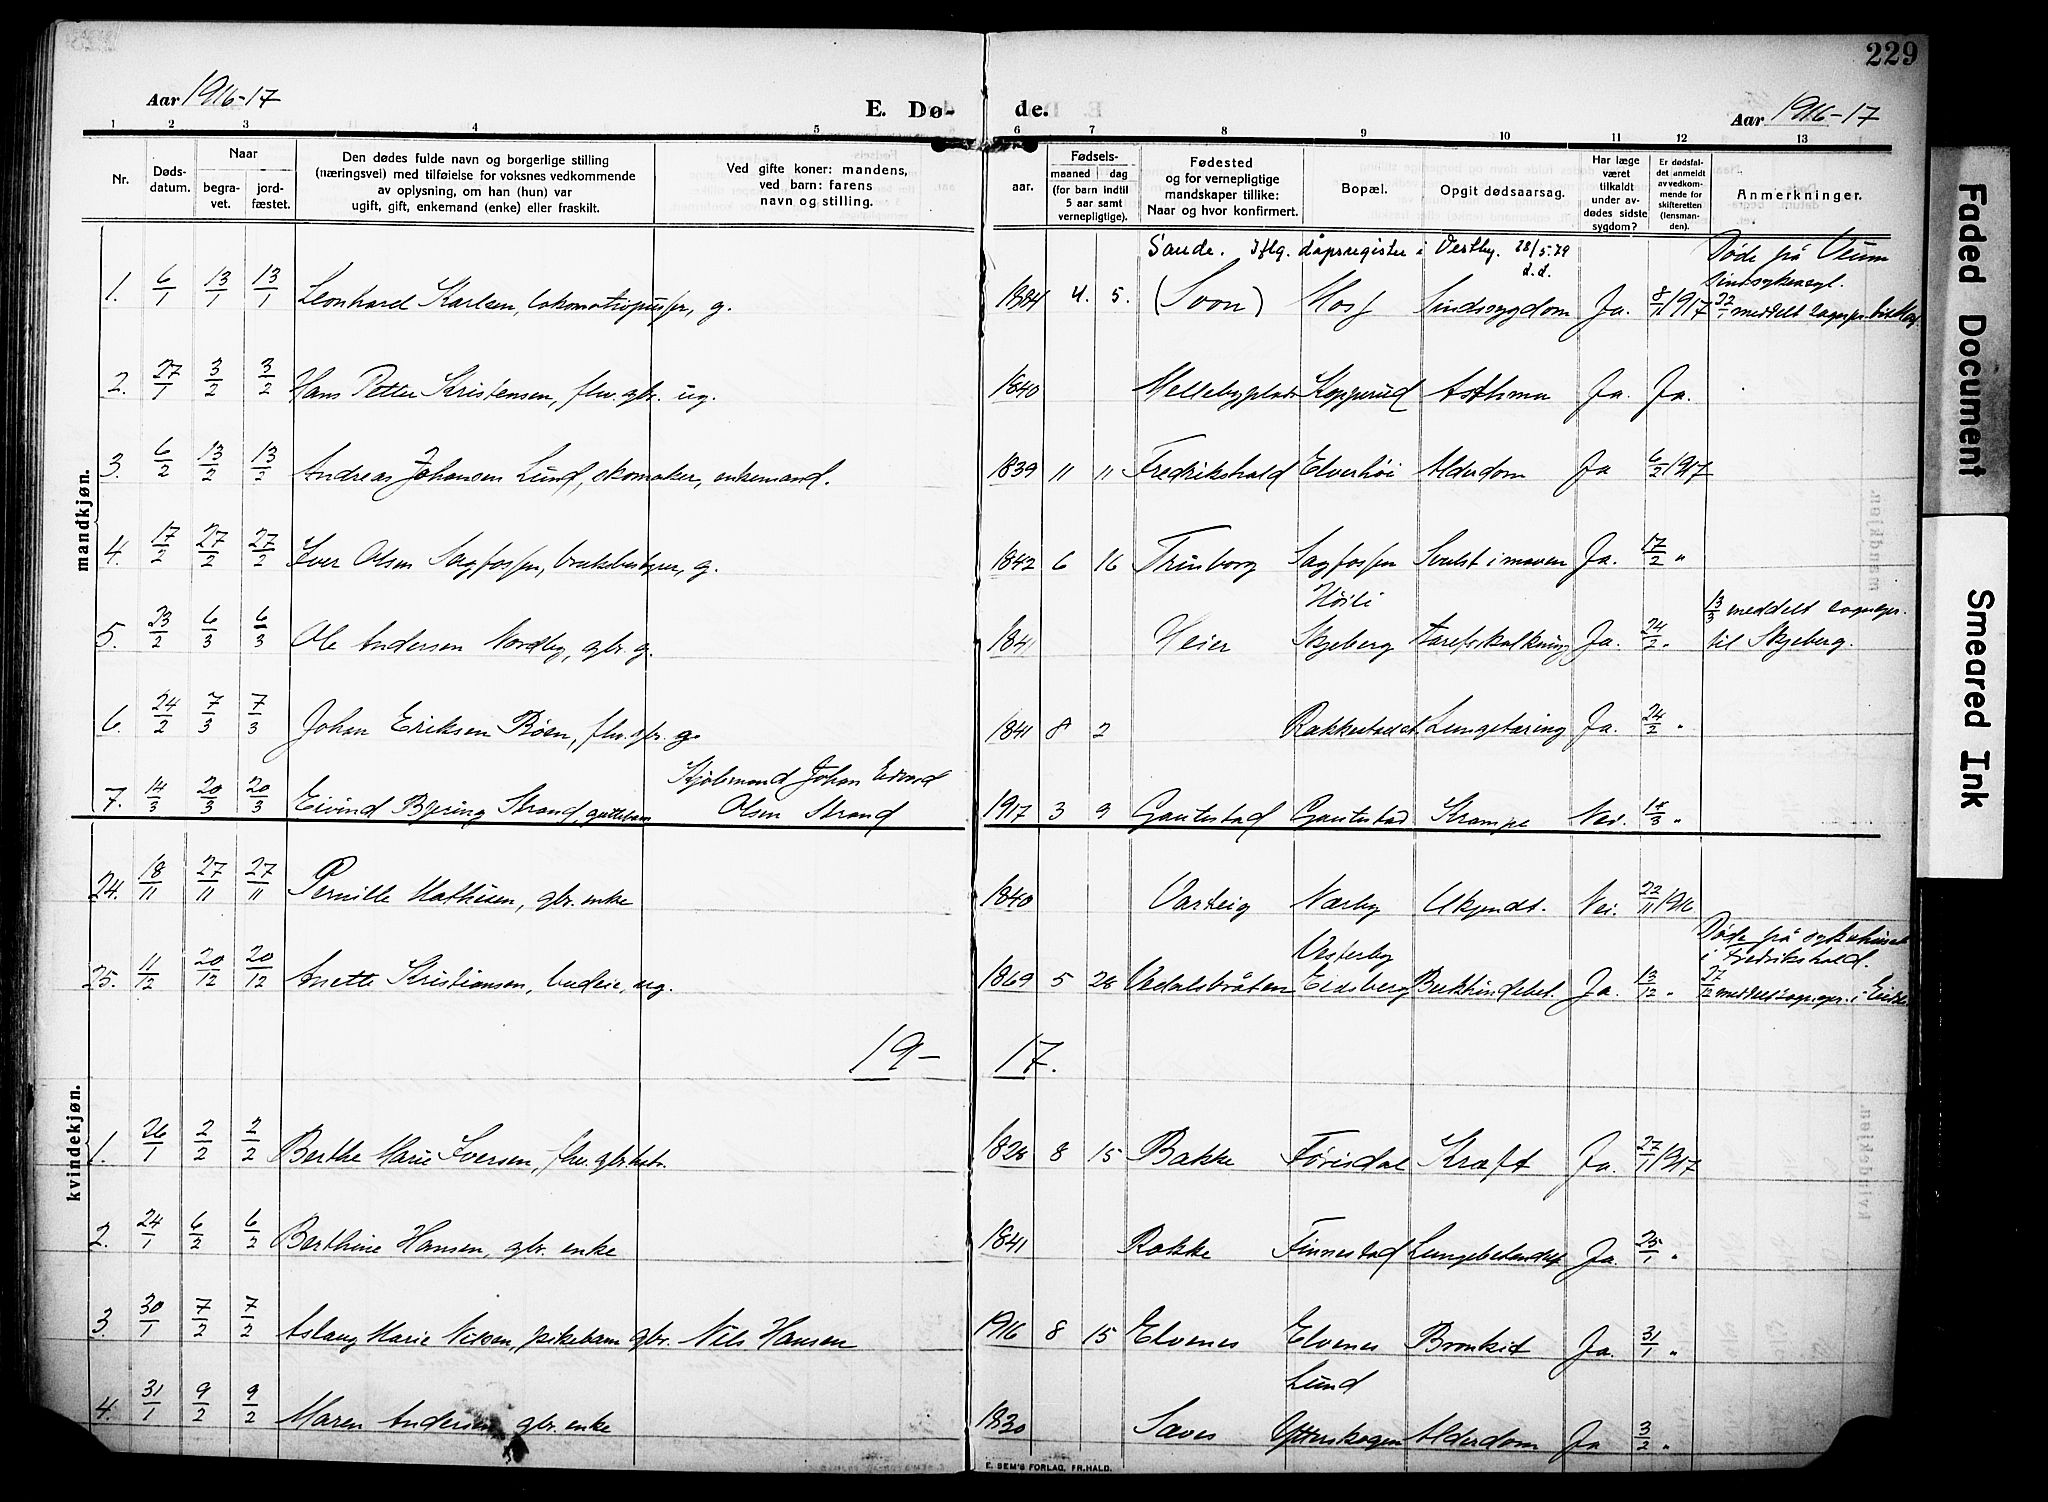 229
Aar 1916-17
E. Dø-
de.
Aar 1916-17
1 2 3 4 5 6 7 8 9 10 11 12 13
Nr.
Døds-
datum.
Naar
begra-
vet.
jord-
fæstet.
Den dødes fulde navn og borgerlige stilling
(næringsvei) med tilføielse for voksnes vedkommende
av oplysning, om han (hun) var
ugift, gift, enkemand (enke) eller fraskilt.
Ved gifte koner: mandens,
ved barn: farens
navn og stilling.
Fødsels-
aar.
maaned dag
(for barn indtil
5 aar samt
vernepligtige).
Fødested
og for vernepligtige
mandskaper tillike:
Naar og hvor konfirmert.
Bopæl.
Opgit dødsaarsag.
Har læge
været
tilkaldt
under av-
dødes sidste
sygdom?
Er dødsfal-
det anmeldt
av vedkom-
mende for
skifteretten
(lensman-
den).
Anmerkninger.
mandkjøn.
Sande. Iflg. dåpsregister i Vestby. 28/5.79
d.d.
Døde på Veum
sindssykeasyl.
1. 6/1 13/1 13/1 Leonhard Karlsen, lokomotivpusser, g. 1884 4. 5. (Soon) Moss Sindssygdom Ja. 8/1 1917 22/1 meddelt sogнepr. i Moss.
2. 27/1 3/2 3/2 Hans Petter Kristensen, fhv. gbr. ug. 1840 Mellebyplads Kopperud Asthma Ja. Ja.
3. 6/2 13/2 13/2 Andreas Johansen Lund, skomaker, enkemand. 1839 11 11 Fredrikshald Elverhöi Alderdom Ja 6/2 1917
4. 17/2 27/2 27/2 Iver Olsen Sagfossen, bruksbestyrer, g. 1842 6 16 Trinborg Sagfossen Svulst i maven Ja. 17/2 "
Høili
13/3 meddelt sognepr.
5. 23/2 6/3 6/3 Ole Andersen Nordby, gbr. g. 1841 Heier Skjeberg Aareforkalkning Ja. 24/2 " til Skjeberg.
6. 24/2 7/3 7/3 Johan Eriksen Röen, fhv. gbr. g. 1841 8 2 Rakkestad Lungetæring Ja. 24/2 "
Johan Edvard
7. 14/3 20/3 20/3 Eivind Bjering Strand, guttebarn Olsen Strand 1917 3 9 Gautestad Gautestad Krampe Nei. "
24. 18/11 27/11 27/11 Pernille Mathisen, gbr. enke 1840 Varteig Nærby Ukjendt. Nei. 22/11 1916
Vesterby
Døde på sykehuset
i Fredrikshald.
25. 11/12 20/12 20/12 Anette Kristiansen, budeie, ug. 1869 5 28 Eidsberg Ja. 13/12 " 27/12 meddelt sognepr. i
19-17.
kvindekjøn.
1. 26/1 2/2 2/2 Berthe Marie Iversen, fhv. 1828 8 15 Bakke Förisdal Kræft Ja. 27/1 1917
2. 24/1 6/2 6/2 Berthine Hansen, gbr. enke 1841 Rokke Finnestad Ja. 25/1 "
3. 30/1 7/2 7/2 Aslaug Marie Nilsen, pikebarn gbr. Nils Hansen 1916 8 15 Elvenes Elvenes Bronkit Ja. 31/1 "
Lund
4. 31/1 9/2 9/2 Maren Andersen, gbr. enke 1830 Saves Ytterskogen Alderdom Ja 3/2 "
E. SEM'S FORLAG, FR.HALD.
Faded Document
Smeared Ink